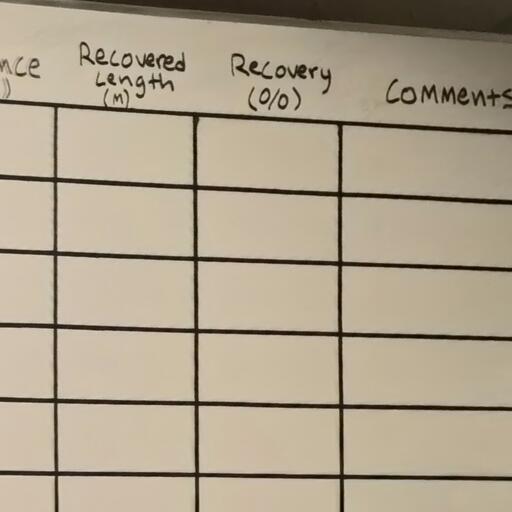 Recovered
Length
(M)
Recovery
(0/0)
Comments